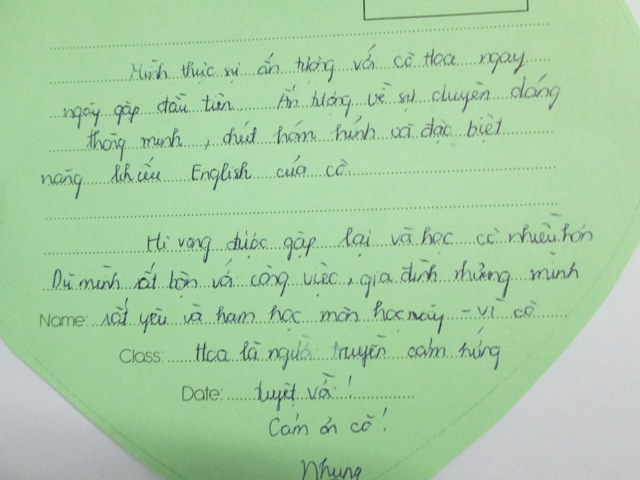 Mình thực sự ấn tượng với cô Hoa ngay
ngày gặp đầu tiên. Ấn tượng về sự duyên dáng
thông minh, chút hóm hỉnh và đặc biệt
năng khiếu English của cô
Hi vọng được gặp lại và học cô nhiều hơn
Dù mình rất bận với công việc, gia đình nhưng mình
Name: rất yêu và ham học môn học này - vì cô
Class: Hoa là người truyền cảm hứng
Date: tuyệt vời!
Cám ơn cô!
Nhung